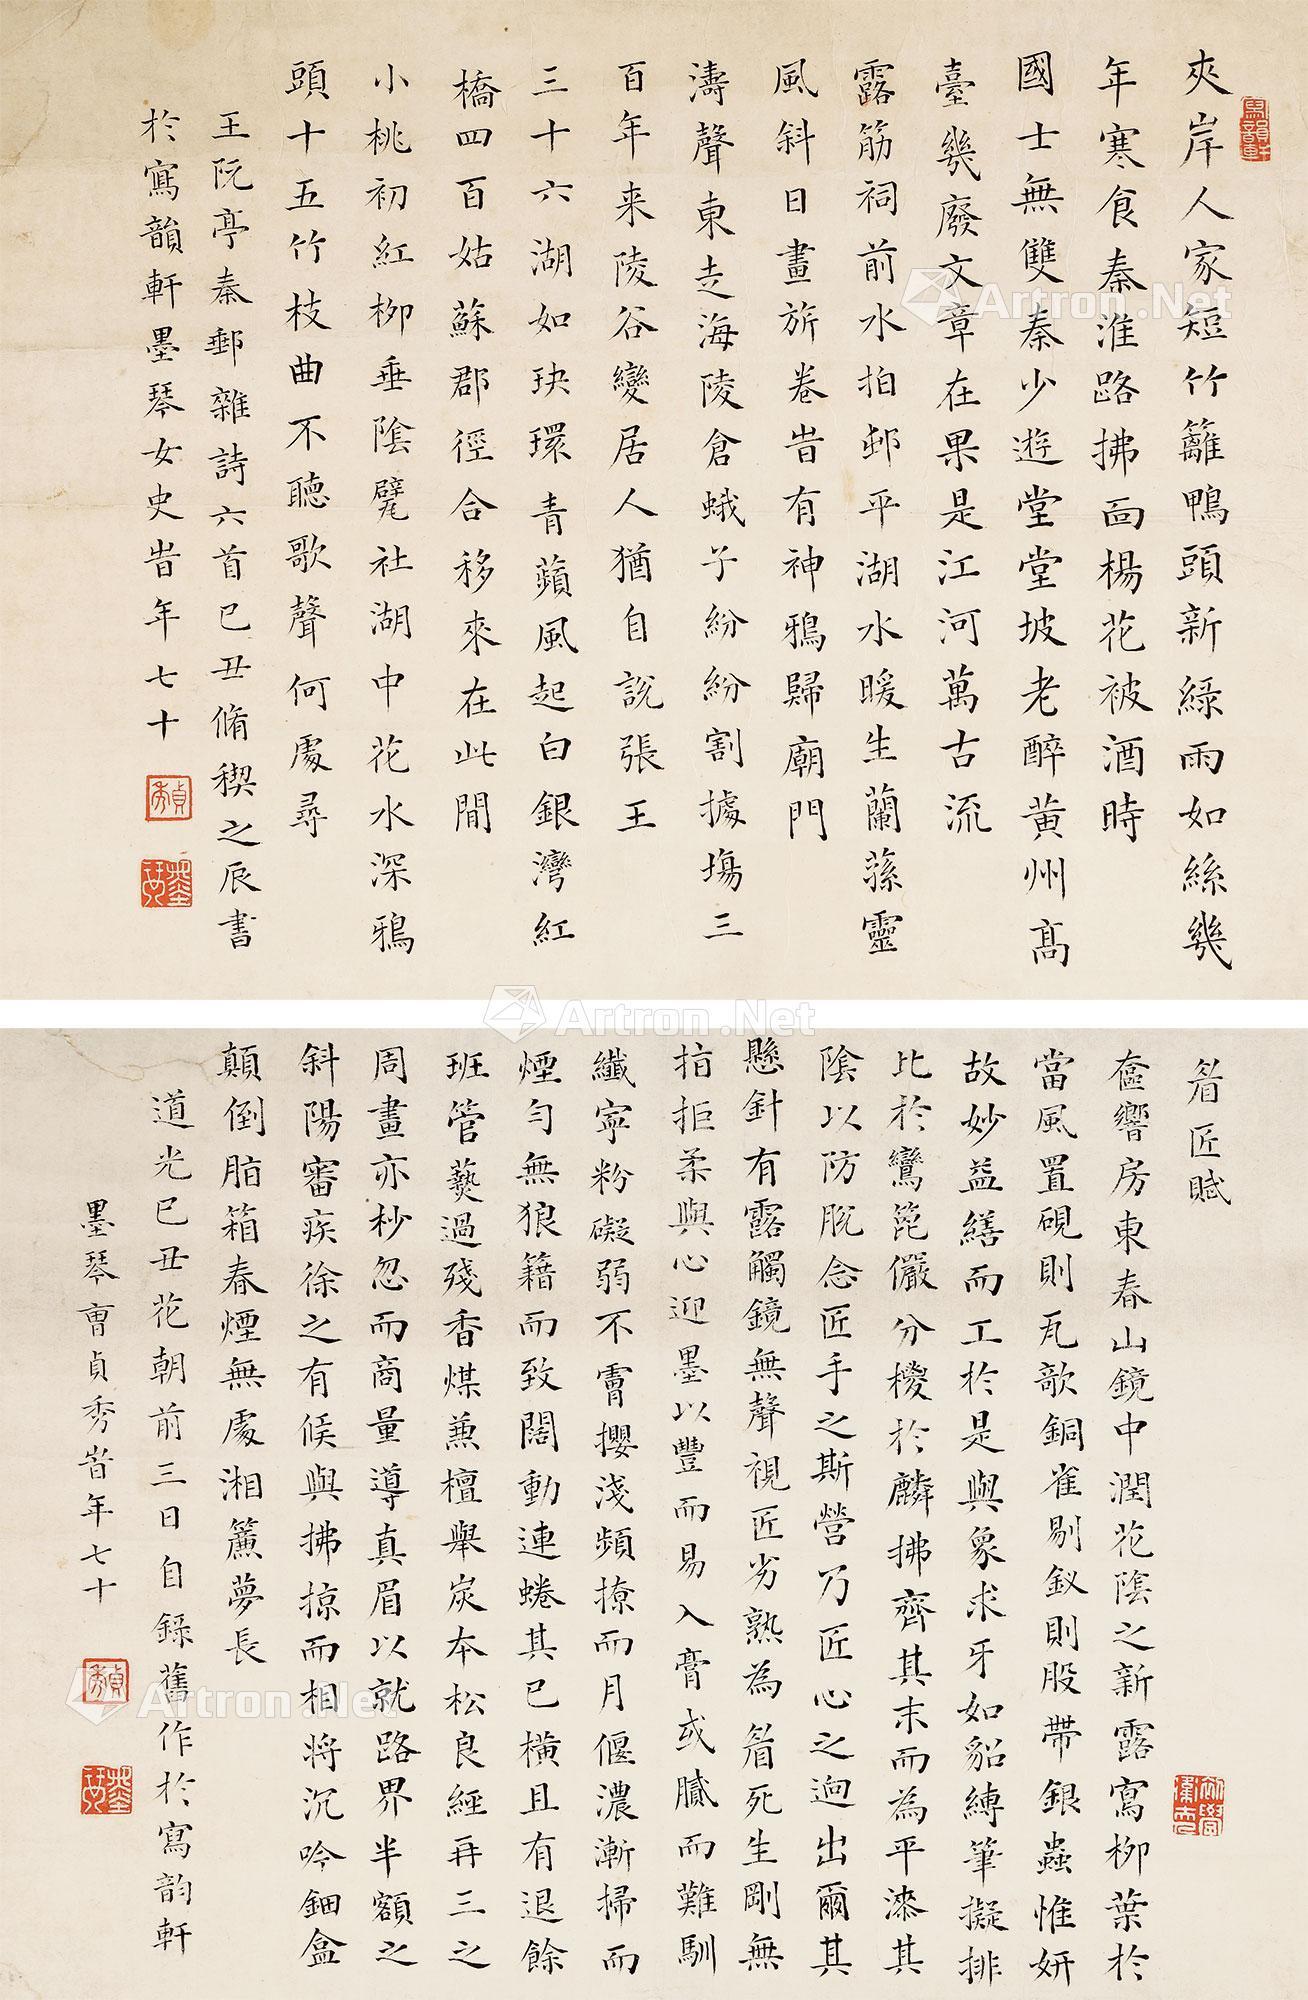 夾岸人家短竹籬鴨頭新綠雨如絲幾
年寒食秦淮路拂面楊花被酒時
國士無雙秦少遊堂堂坡老醉黃州高
臺幾廢文章在果是江河萬古流
露筋祠前水拍郵平湖水暖生蘭蓀靈
風斜日畫旂卷旹有神鴉歸廟門
濤聲東走海陵倉蛾子紛紛割據場三
百年来陵谷變居人猶自說張王
三十六湖如玦環青蘋風起白銀灣紅
橋四百姑蘇郡徑合移來在此間
小桃初紅柳垂陰甓社湖中花水深鴉
頭十五竹枝曲不聽歌聲何處尋
王阮亭秦郵雜詩六首己丑脩稧之辰書
於寫韻軒墨琴女史旹年七十
寫韻軒
貞秀
墨琴
眉匠賦
奩響房東春山鏡中潤花陰之新露寫柳葉於
當風置硯則瓦歌銅雀剔釵則股帶銀蟲惟妍
故妙益繕而工於是與象求牙如貂縛筆擬排
比於鸞箆儼分椶於麟拂齊其末而為平漆其
陰以防脫念匠手之斯營乃匠心之迥出爾其
懸針有露觸鏡無聲視匠劣熟為眉死生剛無
拍拒柔與心迎墨以豐而易入膏或膩而難馴
纖寧粉礙弱不雷攖淺頻撩而月偃濃漸掃而
煙勻無狼籍而致闊動連蜷其已橫且有退餘
班管爇過殘香煤蒹檀舉炭本松良經再三之
周畫亦杪忽而商量導真眉以就路界半額之
斜陽審疾徐之有候與拂掠而相將沉吟鈿盒
顛倒脂箱春煙無處湘簾夢長
道光己丑花朝前三日自錄舊作於寫韵軒
墨琴曹貞秀旹年七十
貞秀
墨琴
Artron.Net
Artron.Net
Artron.Net